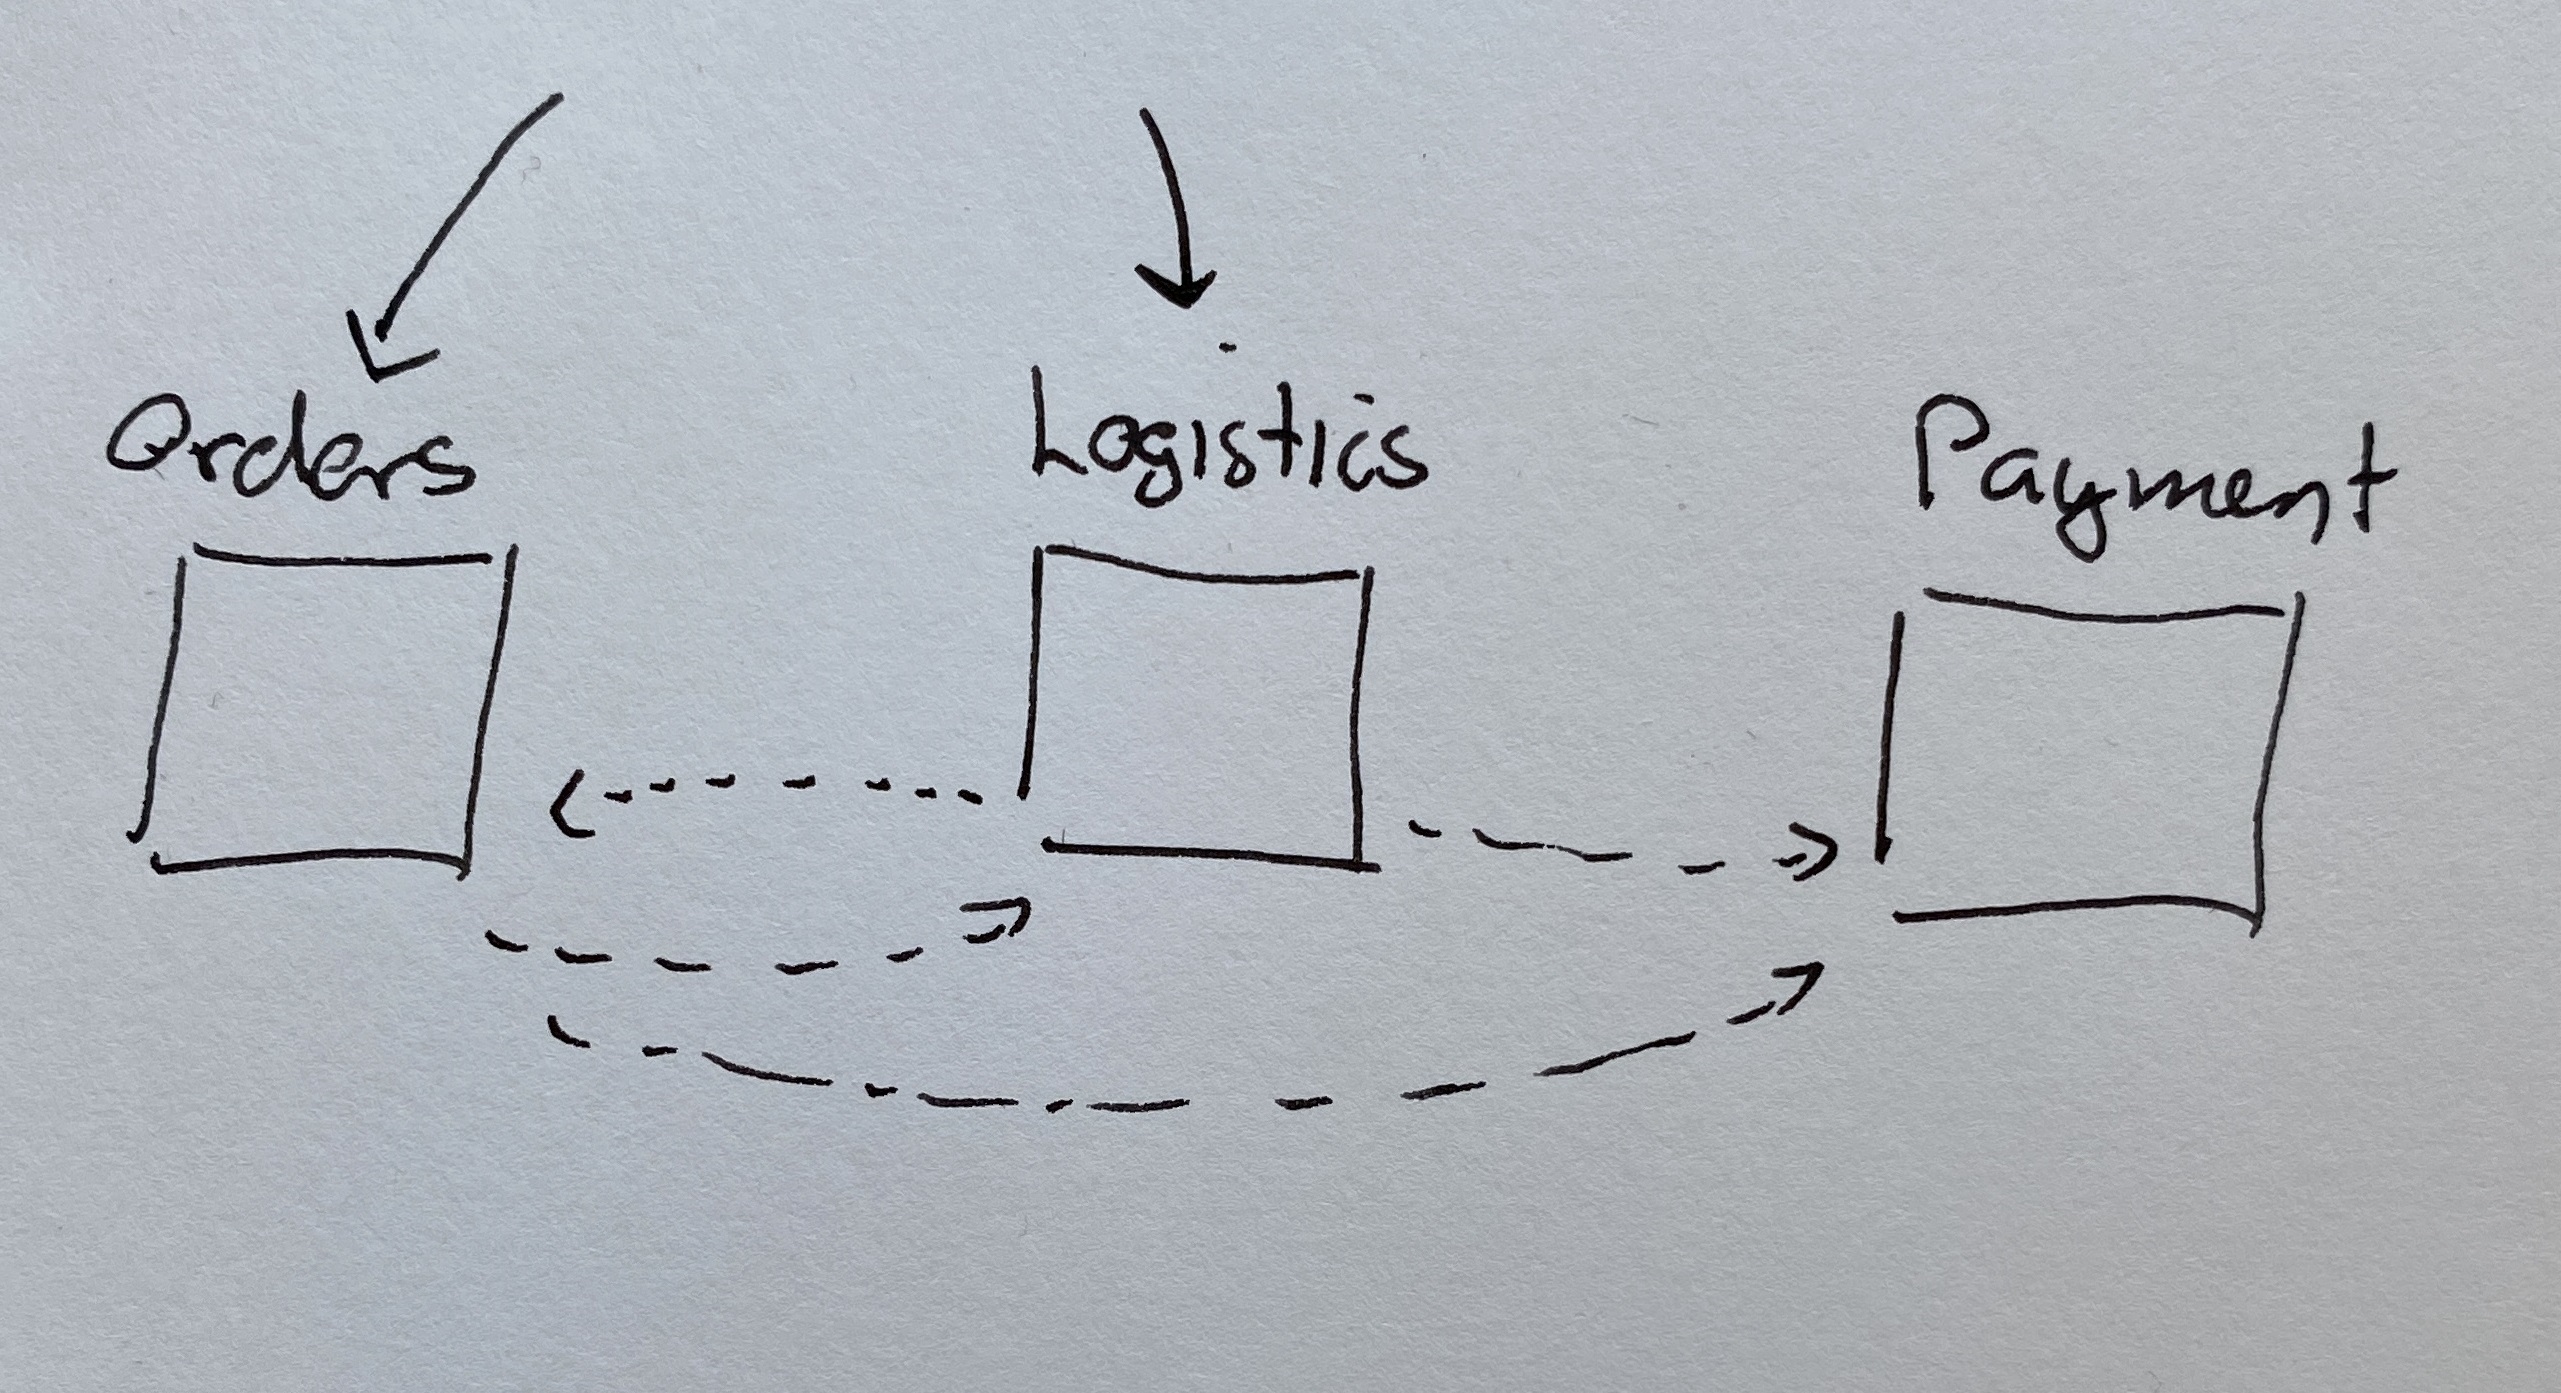 Orders
Logistics
Payment